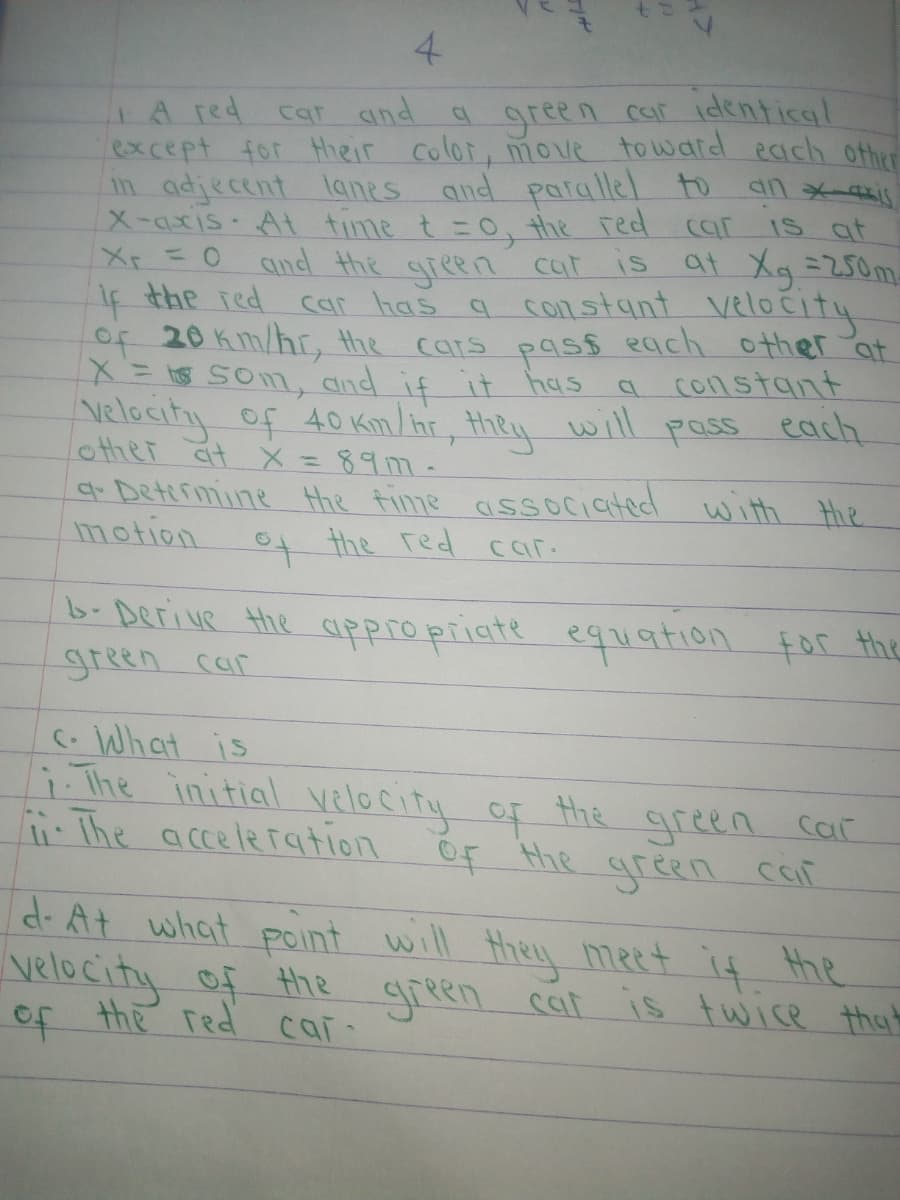 V = 1/t t = 1/v
4
1. A red car and a green car identical
except for their color, move toward each other
in adjecent lanes and parallel to an x-axis
X-axis. At time t = 0, the red car is at
Xr = 0 and the green car is at Xg = 250m
If the red car has a constant velocity
of 20 Km/hr, the cars pass each other at
X = 50m, and if it has a constant
velocity of 40 Km/hr, they will pass each
other at X = 89m.
a- Determine the time associated with the
motion of the red car.
b- Derive the appropriate equation for the
green car
c. What is
i. The initial velocity of the green car
ii. The acceleration of the green car
d- At what point will they meet if the
velocity of the green car is twice that
of the red car.